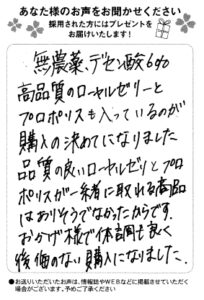 あなた様のお声をお聞かせください
採用された方にはプレゼントを
お届けいたします！
無農薬、デセン酸6%
高品質のローヤルゼリーと
プロポリスも入っているのが
購入の決めてになりました
品質の良いローヤルゼリとプロ
ポリスが一緒に取れる商品
はありそうでなかったからです。
おかげ様で体調も良く
後悔のない購入になりました。
●お送りいただいたお声は、情報誌やWEBなどに掲載させていただく
場合がございます。予めご了承ください